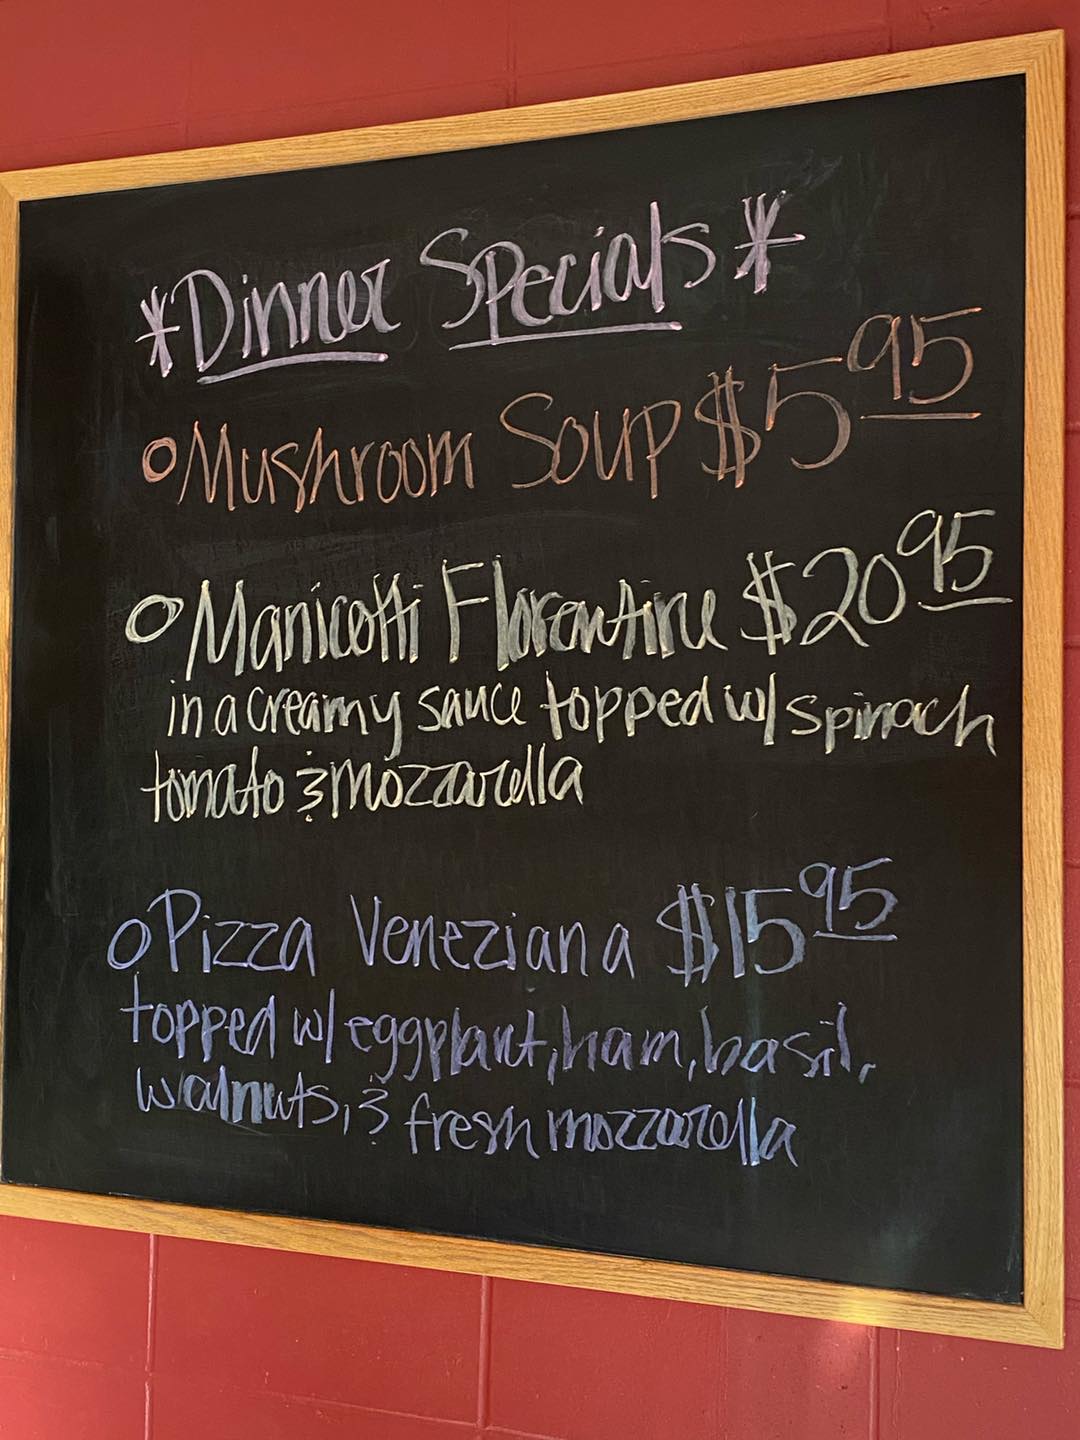 *Dinner Specials*
○ Mushroom Soup $5.95
○ Manicotti Florentine $20.95
in a creamy sauce topped w/ spinach
tomato & mozzarella
○ Pizza Veneziana $15.95
topped w/ eggplant, ham, basil,
walnuts, & fresh mozzarella